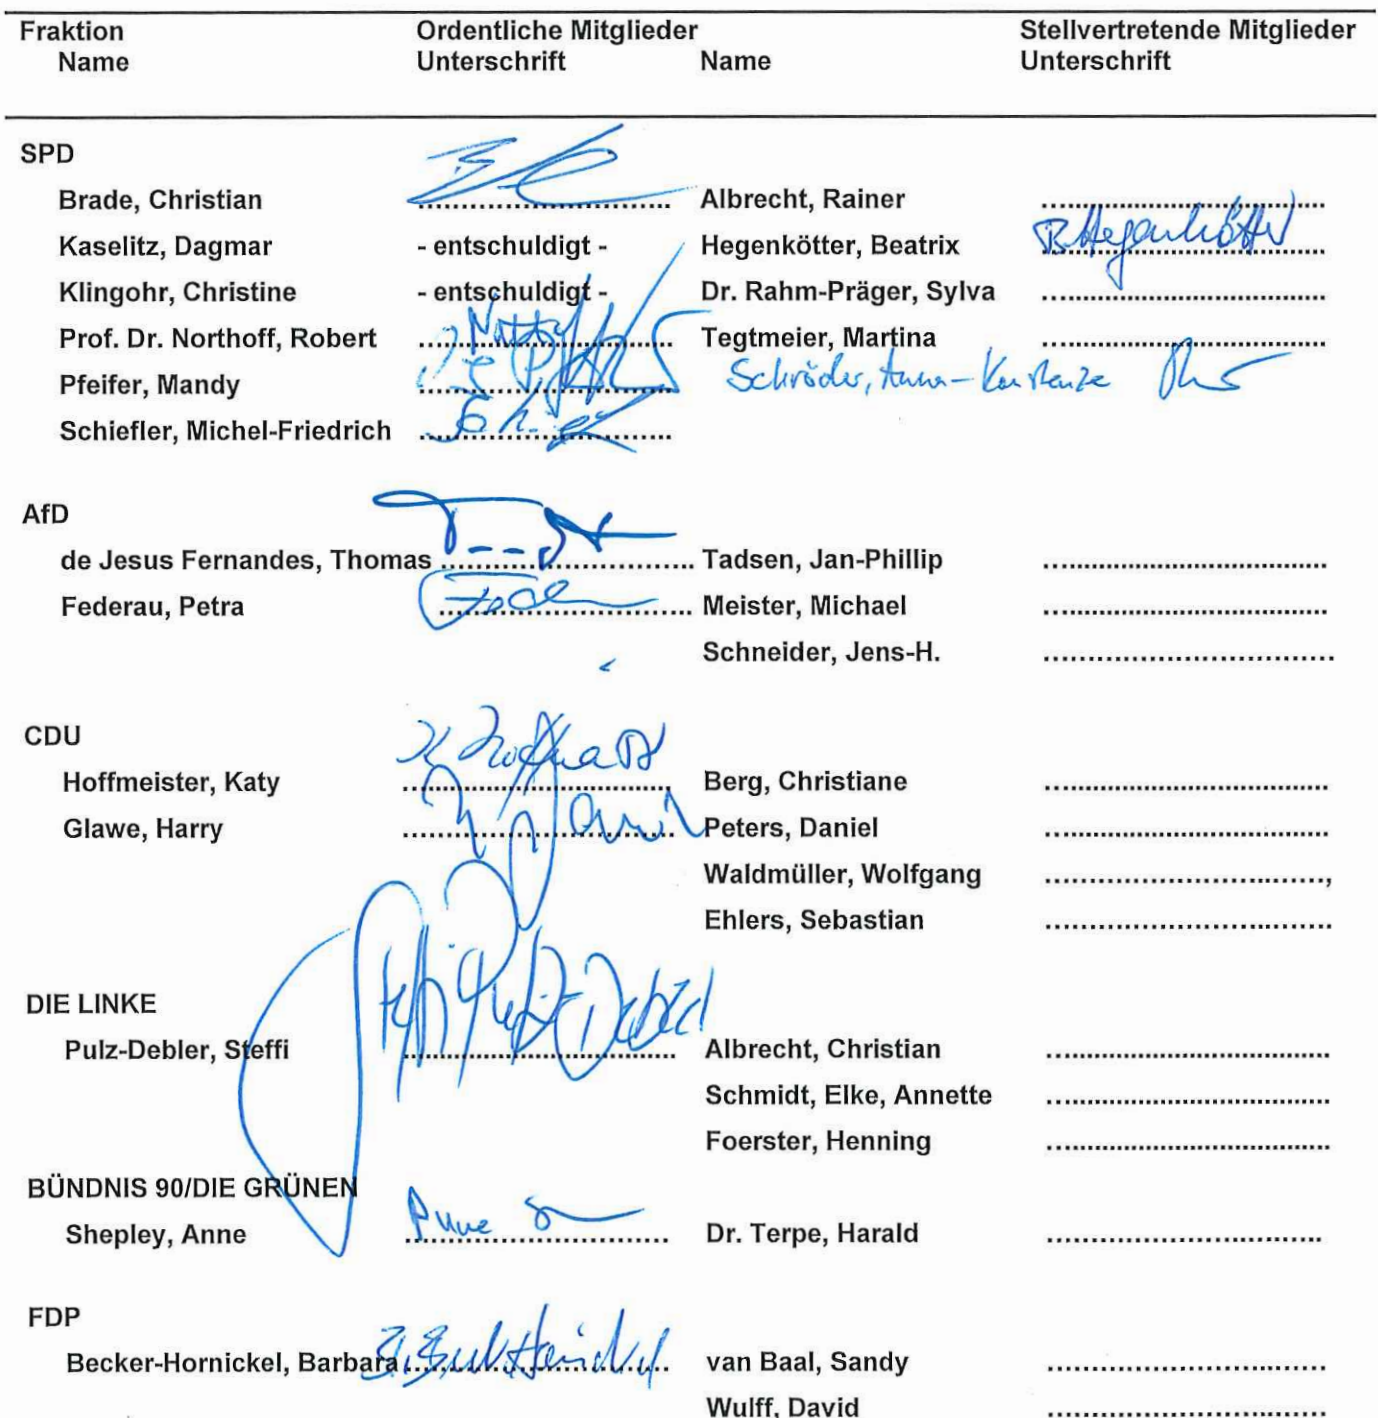 Fraktion Ordentliche Mitglieder Stellvertretende Mitglieder
Name Unterschrift Name Unterschrift
SPD
Brade, Christian .............................. Albrecht, Rainer ..................................
Kaselitz, Dagmar - entschuldigt - Hegenkötter, Beatrix BHegenkötter
Klingohr, Christine - entschuldigt - Dr. Rahm-Präger, Sylva ..................................
Prof. Dr. Northoff, Robert .............................. Tegtmeier, Martina ..................................
Pfeifer, Mandy .............................. Schröder, Anna-Konstanze
Schiefler, Michel-Friedrich ..............................
AfD
de Jesus Fernandes, Thomas .............................. Tadsen, Jan-Phillip ..................................
Federau, Petra .............................. Meister, Michael ..................................
Schneider, Jens-H. ...................................
CDU
Hoffmeister, Katy ................................ Berg, Christiane ..................................
Glawe, Harry ................................ Peters, Daniel ..................................
Waldmüller, Wolfgang ..................................,
Ehlers, Sebastian ..................................
DIE LINKE
Pulz-Debler, Steffi Steffi Pulz-Debler Albrecht, Christian ..................................
Schmidt, Elke, Annette ..................................
Foerster, Henning ..................................
BÜNDNIS 90/DIE GRÜNEN
Shepley, Anne Anne ................................ Dr. Terpe, Harald .................................
FDP
Becker-Hornickel, Barbara ................................ van Baal, Sandy .................................
Wulff, David .................................